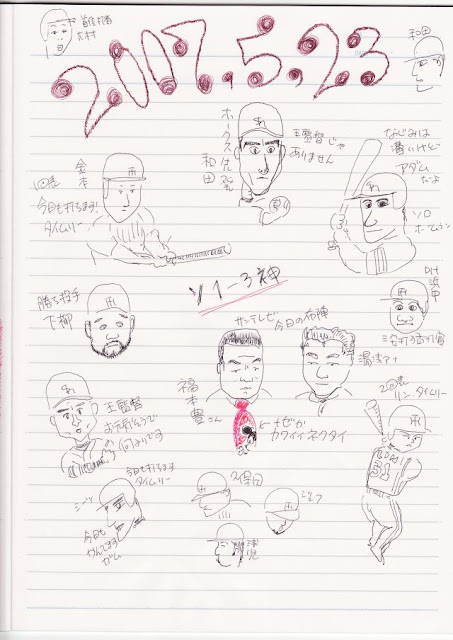 大村
2007.5.23
和田
ホークス
和田
王監督じゃ
ありません
なじみは
薄いけど
アダム
だよ
ソロ
ホームラン
金本
1回表
今日も打ちます!
タイムリー
ソ1-3神
DH
浜中
三打席
勝ち投手
下柳
サンテレビ
今日の布陣
湯浅アナ
福本豊さん
なぜか
カワイイネクタイ
2回表
リン、タイムリー
LIN
31
王監督
お元気そうで
何よりです
今日も打ちます
タイムリー
シーツ
今日も
かんでます
ガム
久保田